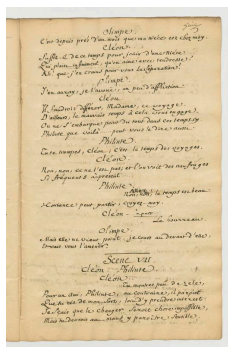 Olimpe
C'est depuis près d'un mois que ma Niéce est chez moy.
Cléon
Suffit. C'est de ce temps pour jouir d'une Niéce
Qui plaise infiniment, qu'on aime avec tendresse.
Ah! que j'en crains pour vous la séparation!
Olimpe
J'en auray, je l'avoüe, un peu d'affliction
Cléon
Il faudroit différer, Madame, ce voyage.
D'ailleurs, le mauvais temps
On ne s'embarque point du tout dans ce temps-cy
Philinte que voilà peut vous le dire aussi.
Philinte
Tu te trompes, Cléon; c'est le temps des voyages.
Cléon
Non, non, ce ne l'est pas; et l'on voit des naufrages
Si fréquents à présent
Philinte
Non, non, le temps est beau
Hortence peut partir; croyez-moy.
Cléon
Le bourreau
Olimpe
Mais elle ne vient point. je cours au devant d'elle.
Voulez-vous l'attendre?
Scene VII
Cléon, Philinte
Cléon
Tu montres peu de zele,
Pour un ami; Philinte, au contraire, il paroist
Que tu n'es de mon costé, loin d'y prendre interest
Je sçais que le changer seroit chose impossible,
Mais tu devrois au moins y paroître sensible.